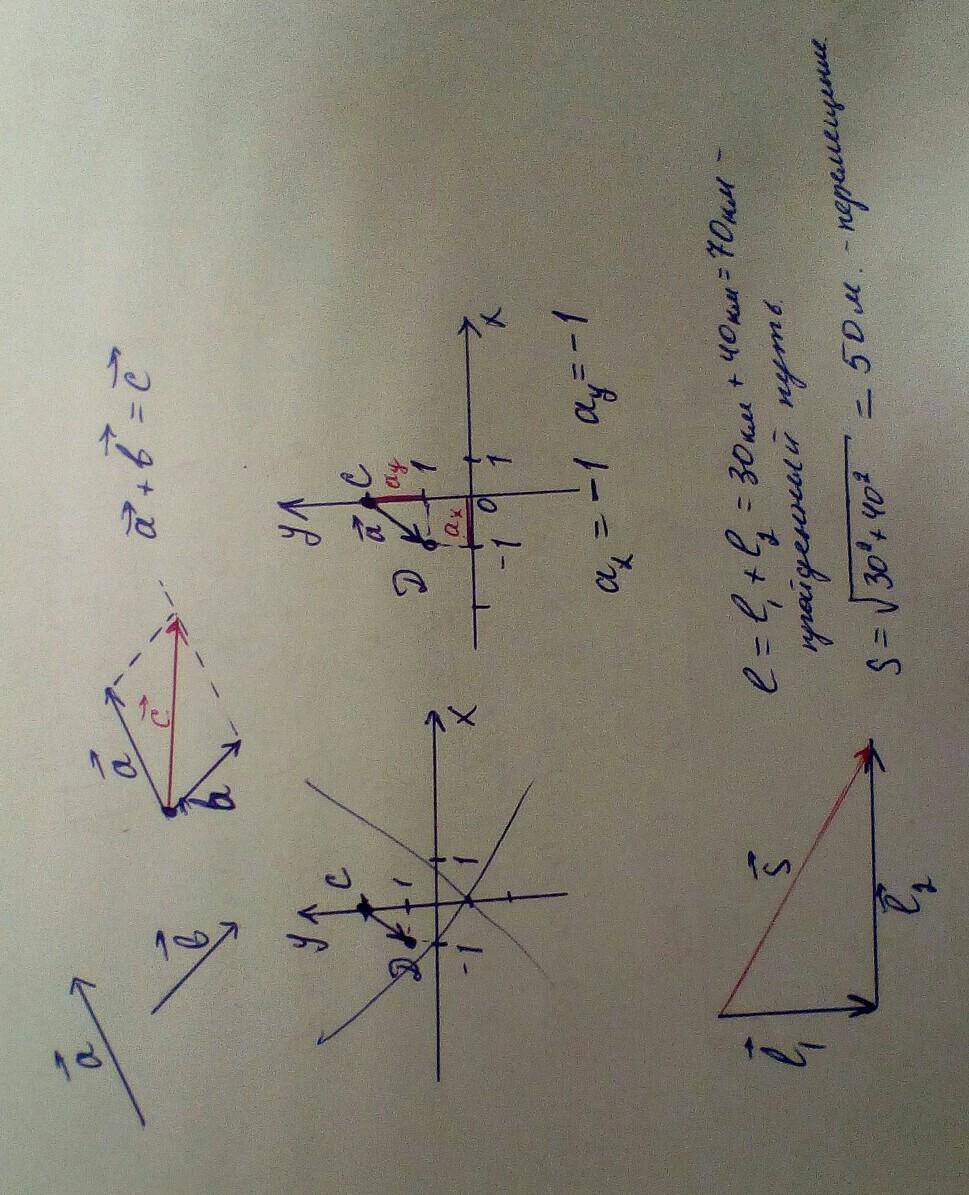 a⃗
b⃗
a⃗
c⃗
b
a⃗ + b⃗ = c⃗
y
C
1
D
-1
1
x
y
C
a⃗
a_y
1
D
a_x
-1
0
1
x
a_x = -1 a_y = -1
l⃗₁
S⃗
l⃗₂
l = l₁ + l₂ = 30км + 40км = 70км -
пройденный путь
S = √30² + 40² = 50м. - перемещение